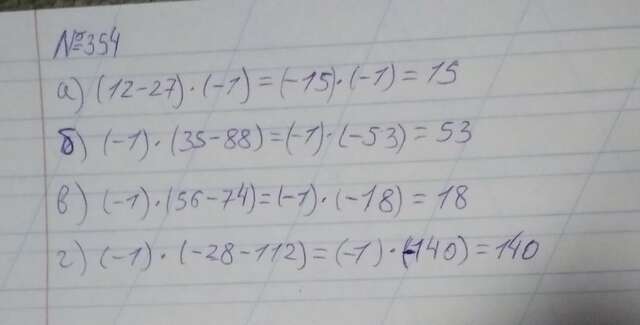 №354
а) (12-27)·(-1)=(-15)·(-1)=15
б) (-1)·(35-88)=(-1)·(-53)=53
в) (-1)·(56-74)=(-1)·(-18)=18
г) (-1)·(-28-112)=(-1)·(-140)=140